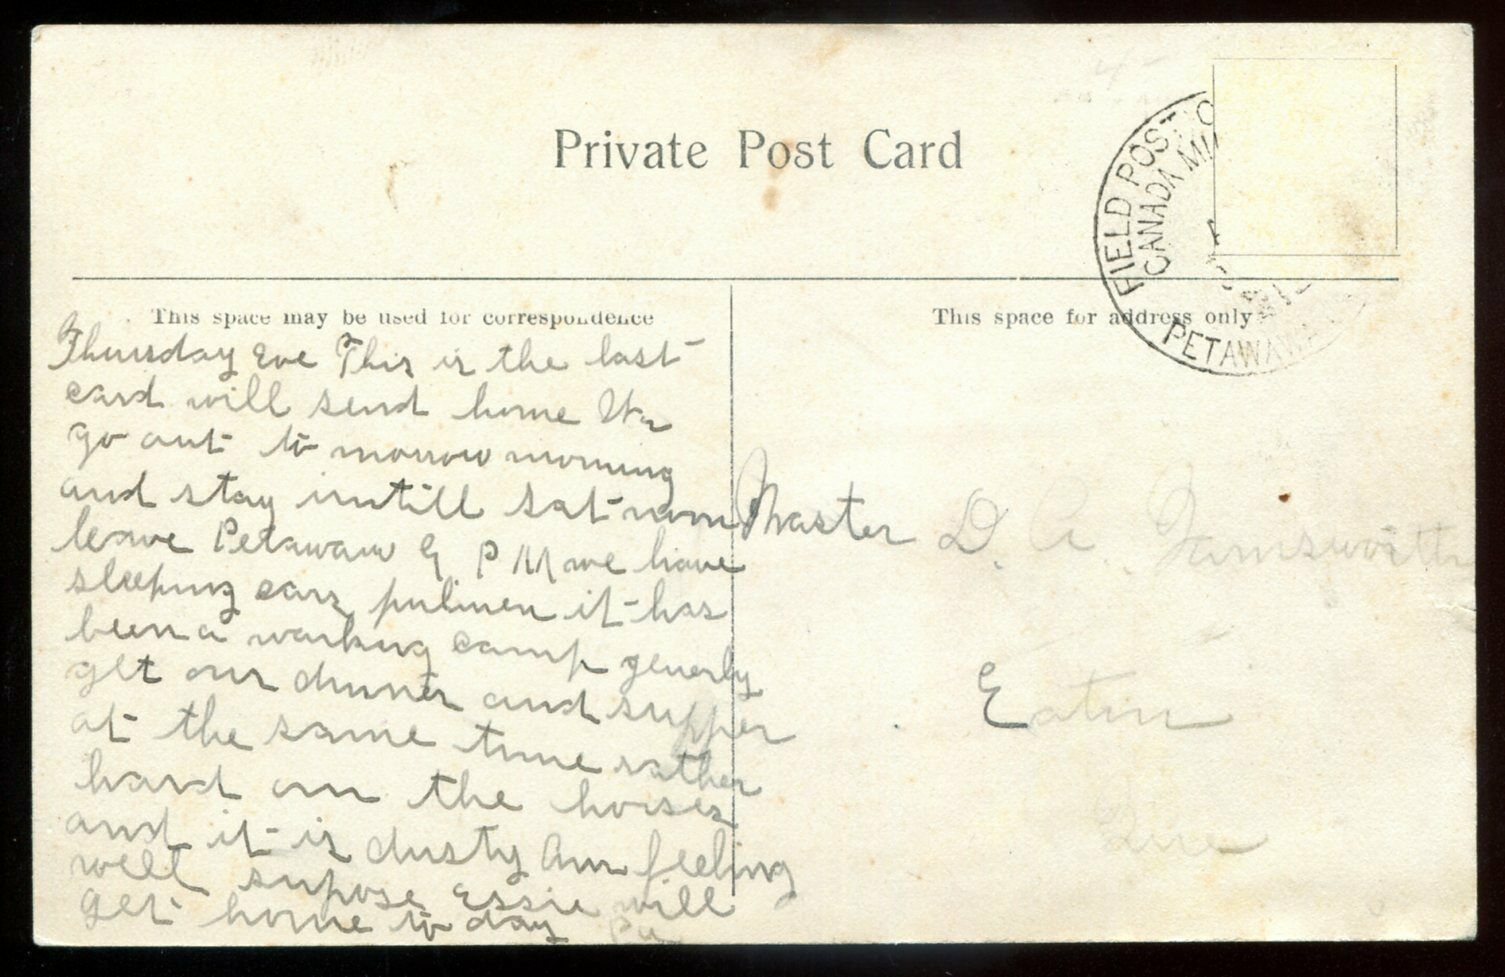 Private Post Card
FIELD POST
CANADA MI
PETAWAWA
This space may be used for correspondence
This space for address only
Thursday Eve This is the last
card will send home We
go out to morrow morning
and stay untill Sat noon
leave Petawaw 9 P M we have
sleeping cars pulmen it has
been a working camp generly
get our dinner and supper
at the same time rather
hard on the horses
and it is dusty Am feeling
well supose Essie will
get home to day
Master D. A. Farnsworth
Eaton
Que